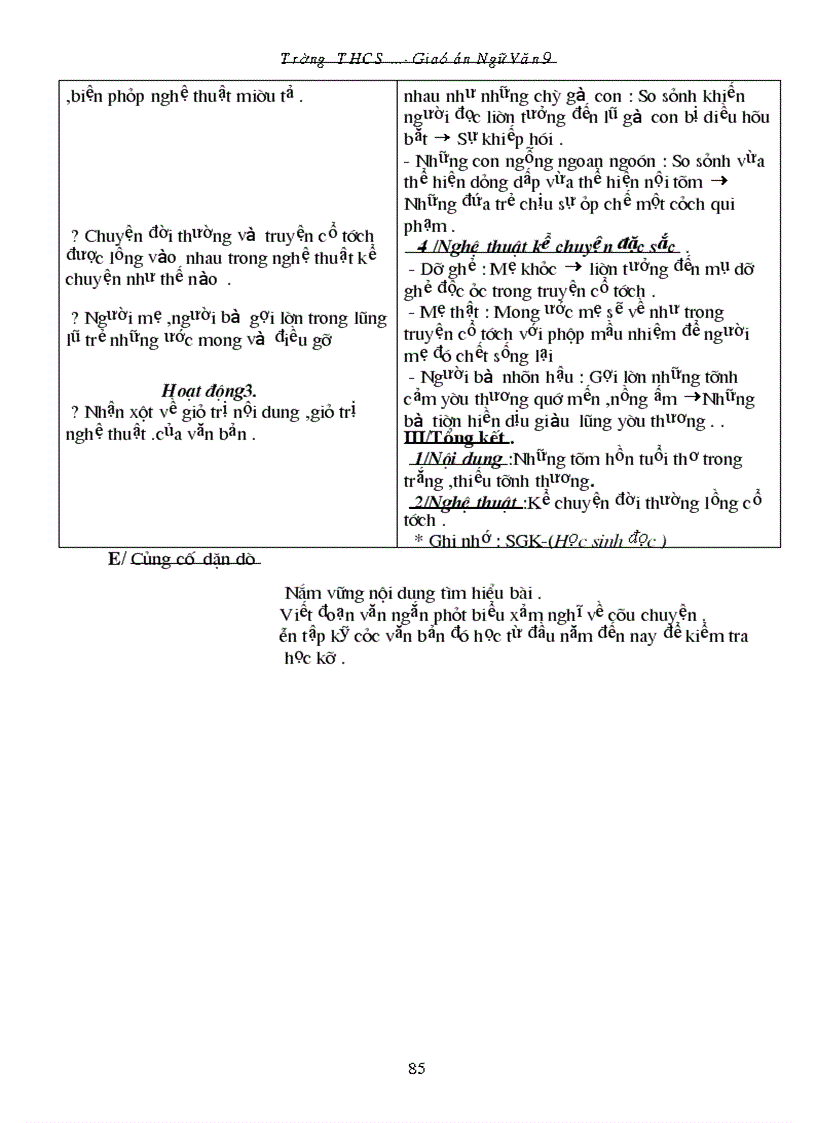 Trờng THCS ...- Giaó án Ngữ Văn 9
,biện phỏp nghệ thuật miờu tả .
? Chuyện đời thường và truyện cổ tớch
được lồng vào nhau trong nghệ thuật kể
chuyện như thế nào .
? Người mẹ ,người bà gợi lờn trong lũng
lũ trẻ những ước mong và điều gỡ
Hoạt động3.
? Nhận xột về giỏ trị nội dung ,giỏ trị
nghệ thuật .của văn bản .
nhau như những chỳ gà con : So sỏnh khiến
người đọc liờn tưởng đến lũ gà con bị diều hõu
bắt → Sự khiếp hói .
- Những con ngỗng ngoan ngoón : So sỏnh vừa
thể hiện dỏng dấp vừa thể hiện nội tõm →
Những đứa trẻ chịu sự ỏp chế một cỏch qui
phạm .
4 /Nghệ thuật kể chuyện đặc sắc .
- Dỡ ghẻ : Mẹ khỏc → liờn tưởng đến mụ dỡ
ghẻ độc ỏc trong truyện cổ tớch .
- Mẹ thật : Mong ước mẹ sẽ về như trong
truyện cổ tớch với phộp mầu nhiệm để người
mẹ đó chết sống lại
- Người bà nhõn hậu : Gợi lờn những tỡnh
cảm yờu thương quớ mến ,nồng ấm →Những
bà tiờn hiền dịu giàu lũng yờu thương . .
III/Tổng kết .
1/Nội dung :Những tõm hồn tuổi thơ trong
trắng ,thiếu tỡnh thương.
2/Nghệ thuật :Kể chuyện đời thường lồng cổ
tớch .
* Ghi nhớ : SGK-(Học sinh đọc )
E/ Củng cố dặn dò
Nắm vững nội dung tìm hiểu bài .
Viết đoạn văn ngắn phỏt biểu xảm nghĩ về cõu chuyện .
ễn tập kỹ cỏc văn bản đó học từ đầu năm đến nay để kiểm tra
học kỡ .
85